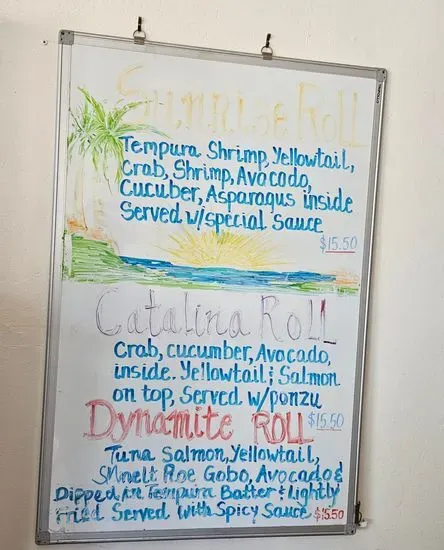 Sunrise Roll
Tempura Shrimp, Yellowtail,
Crab, Shrimp, Avacado,
Cucuber, Asparagus inside
Served w/special sauce
$15.50
Catalina Roll
Crab, cucumber, Avocado,
inside. Yellowtail & Salmon
on top, Served w/ponzu
Dynamite ROLL $15.50
Tuna Salmon, Yellowtail,
Smelt Roe Gobo, Avocado &
Dipped in Tempura Batter & Lightly
Fried Served With Spicy Sauce $15.50